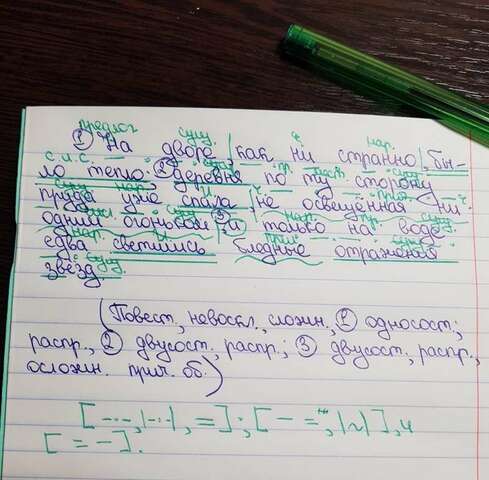 предлог сущ. ч нар.
① На дворе, |как ни странно|, бы-
с.и.с. сущ. пр. мест. сущ.
ло тепло; ② деревня по ту сторону
сущ. нар. ч.
пруда уже спала, |не освещённая ни
сущ. нар. пр. сущ.
одним огоньком|, ③ а только на воде
нар. прил. сущ.
едва светились бледные отражения
сущ.
звёзд.
(Повест., невоскл., сложн., ① односост;
распр., ② двусост, распр.; ③ двусост, распр.,
осложн. прич. об.)
[-·-, |-·-|, =]; [- =, |~|], а
[= -].